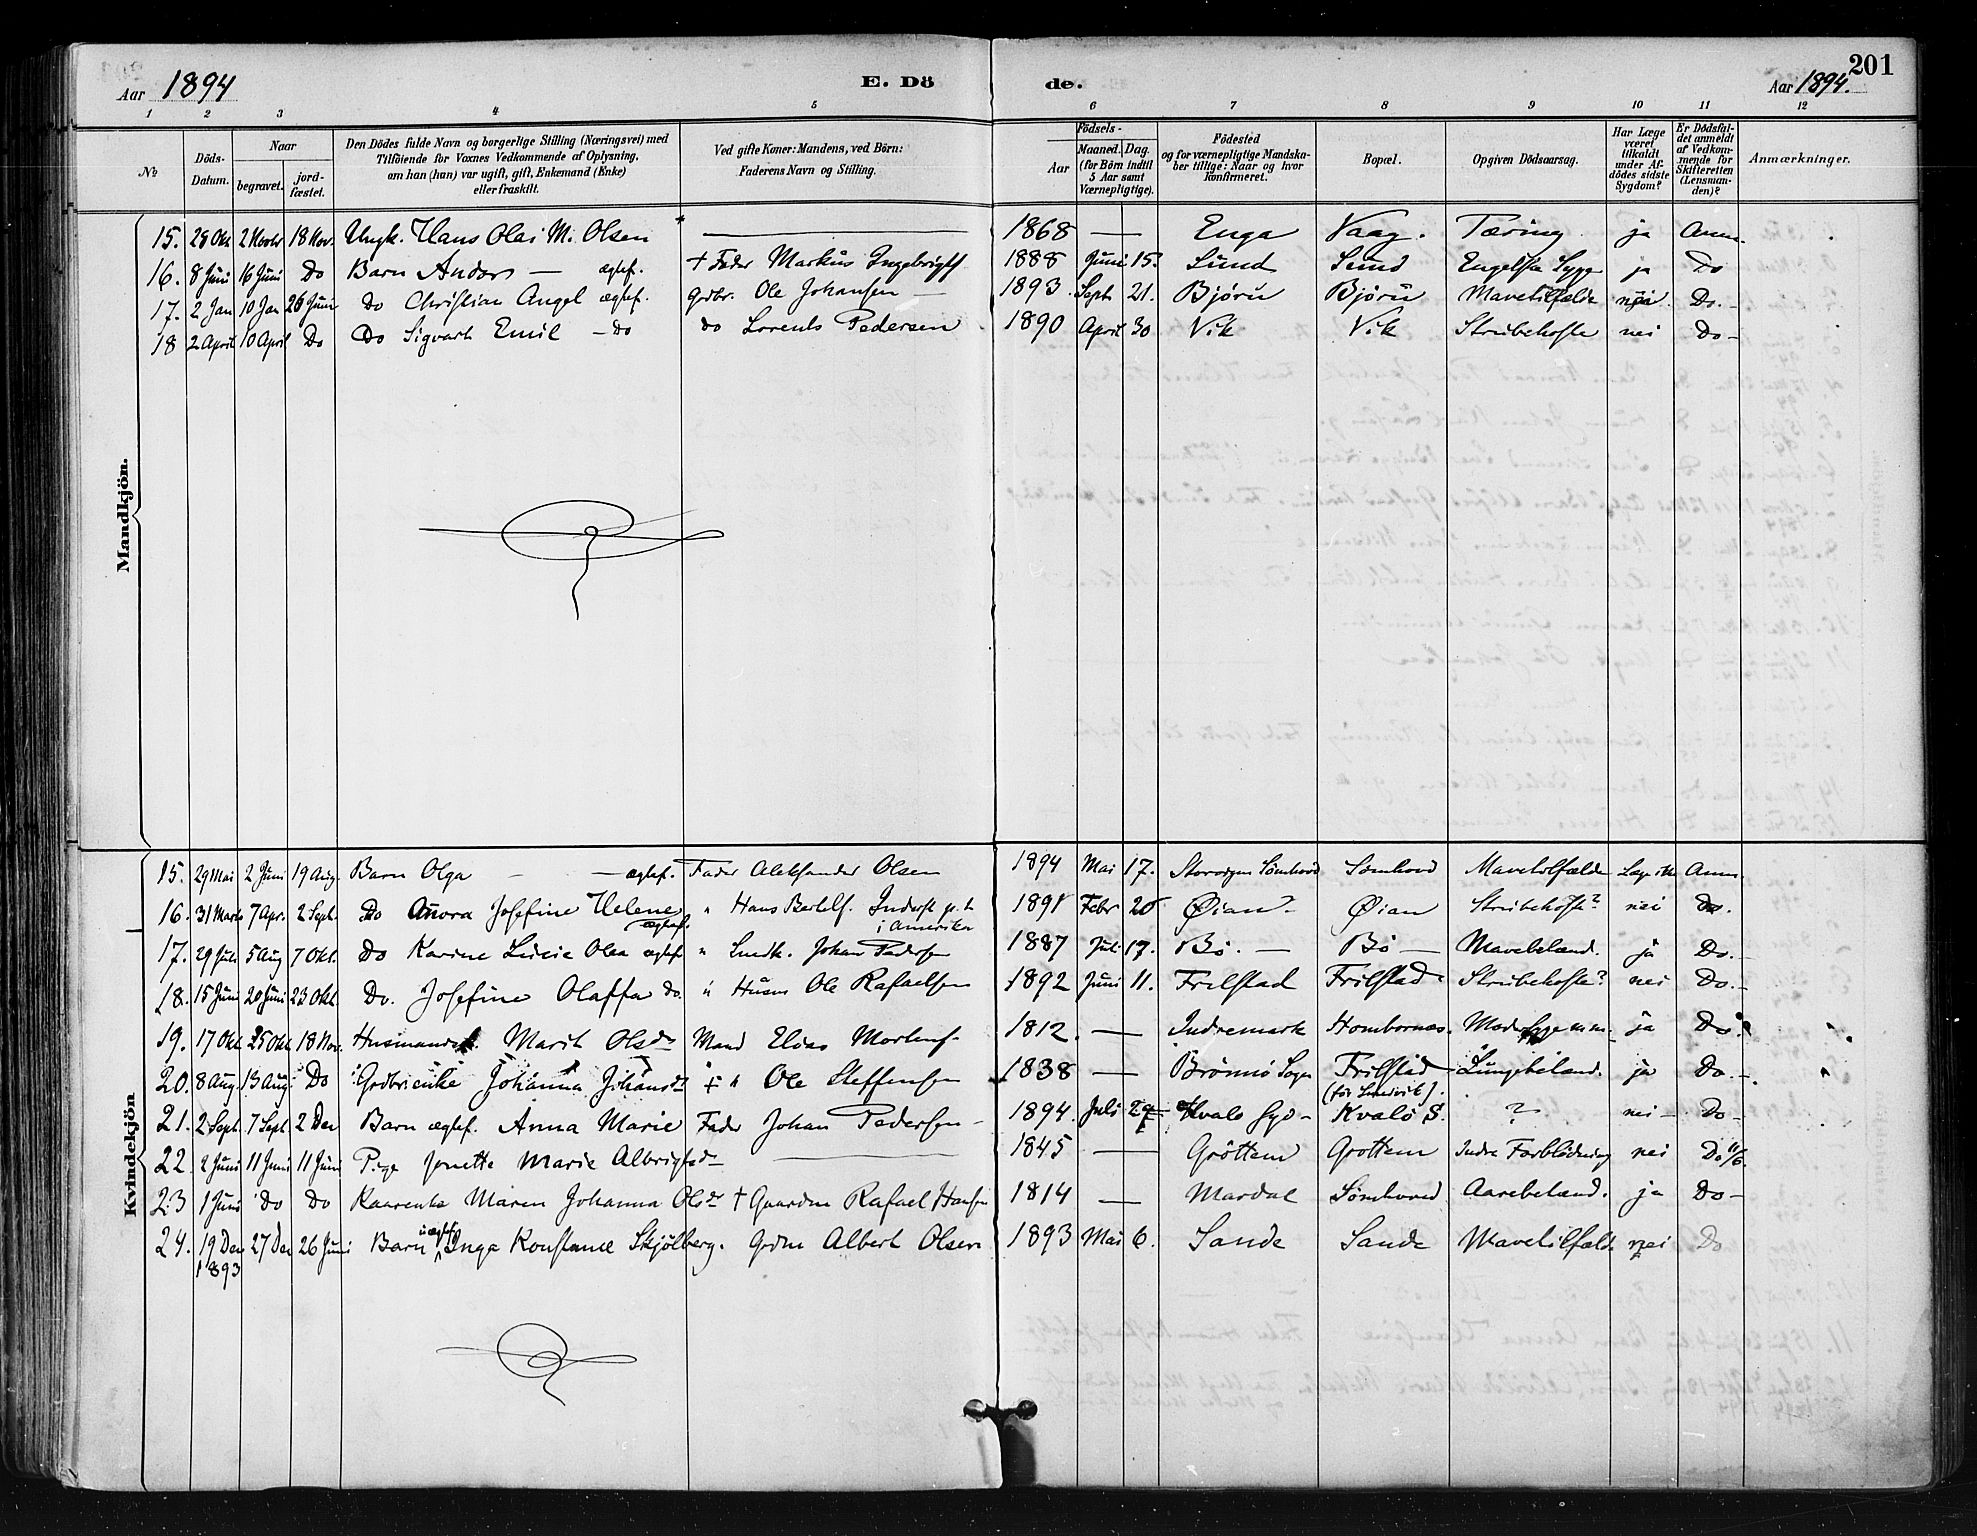 201
Aar 1894 E. Dö de. Aar 1894.
1 2 3 4 5 6 7 8 9 10 11 12
№ Döds-Datum. Naar begravet. jord-fæstet. Den Dödes fulde Navn og borgerlige Stilling (Næringsvei) med Tilföiende for Voxnes Vedkommende af Oplysning, om han (hun) var ugift, gift, Enkemand (Enke) eller fraskilt. Ved gifte Koner: Mandens, ved Börn: Faderens Navn og Stilling. Födsels- Aar Maaned. Dag. (for Börn indtil 5 Aar samt Værnepligtige). Födested og for værnepligtige Mandska-ber tillige: Naar og hvor konfirmeret. Bopæl. Opgiven Dödsaarsag. Har Læge været tilkaldt under Af-dödes sidste Sygdom? Er Dödsfal-det anmeldt af Vedkom-mende for Skifteretten (Lensman-den)? Anmærkninger.
Mandkjön.
15. 28 Okt 2 Novbr 18 Nov. Ungk. Hans Olai M. Olsen — 1868 — Enga Vaag. Tæring ja Anm.
16. 8 Juni 16 Juni Do Barn Anders — ægtef. + Fader Markus Ingebrigts 1888 Juni 15. Lund Lund Engelsk Syge ja Do
17. 2 Jan 10 Jan 26 Juni Do Christian Angel ægtef. Grdbr. Ole Johansen — 1893. Sept. 21. Bjøru Bjøru Mavetilfælde nei. Do. —
18 2 April 10 April Do Do Sigvart Emil — do do Lorents Pedersen 1890 April 30 Vik Vik Strubehoste nei Do —
Kvindekjön
15. 29 Mai 2 Juni 19 Aug. Barn Olga — — ægtef. Fader Aleksander Olsen 1894 Mai 17. Sømhovd Sømhovd Mavetilfælde Anm.
16. 31 Marts 7 Apr. 2 Sept. Do Anora Josefine Helene ægtef. " Hans Bertelf. Inderst p. t. i Amerika 1891 Febr 20 Øian. — Øian Strubehoste? nei Do.
17. 29 Juli 5 Aug 7 Okt. Do Karine Lucie Olea ægtef. " Johan Pedersen 1887 Juli 17. Bö. — Bö — Mavebetænd. ja Do. —
18. 15 Juni 20 Juni 23 Okt. Do. Josefine Olaffa do. " Husm Ole Rafaelsen 1892 Juni 11. Frilstad Frilstad Strubehoste? nei Do. —
19. 17 Okt 25 Okt 18 Nov. Marit Olsdr Mand Elias Mortens. 1812. — Indremark Hombornæs. ja Do.
20. 8 Aug. 13 Aug Do Grdbrienke Johanna Johansdr + " Ole Steffensen 1838 — Brönnö Sogn Frilstad (för Lundvik). Lungebetænd. ja Do. —
21. 2 Sept. 7 Sept 2 Dec Barn ægtef. Anna Marie Fader Johan Pedersen — 1894. Juli 27 Kvalö S. ? nei — Do —
22. 2 Juni 11 Juni 11 Juni Pige Jenette Marie Albrigtsdr — 1845 — Gröttem Grottem Indre Forblödning nei Do 11/6.
23 1 Juni Do Do Kaarenke Maren Johanna Olsdr + Gaardm Rafael Hansen 1814 — Mardal Sömhovd Aarebetænd. ja Do —
24. 19 Dec 1893 27 Dec 26 Juni Barn uægtef. Inga Konstance Skjölberg. Grdm Albert Olsen 1893 Mai 6. Sande Sande Mavetilfælde nei Do